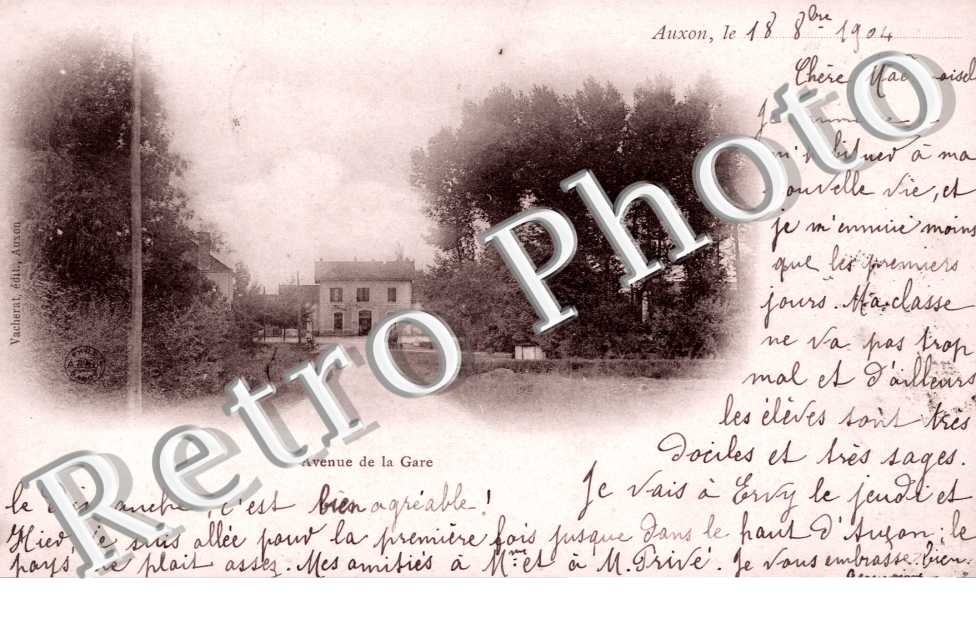 Auxon, le 18 8bre 1904
Chère Mademoisel
Je
m'habituer à ma
nouvelle vie, et
je m'ennuie moins
que les premiers
jours. Ma classe
ne va pas trop
mal et d'ailleurs
les élèves sont très
dociles et très sages.
Je vais à Ervy le jeudi et
le dimanche, c'est bien agréable!
Hier, je suis allée pour la première fois jusque dans le haut d'Auxon; le
pays me plait assez. Mes amitiés à Mme et à M. Privé. Je vous embrasse bien.
Avenue de la Gare
Vacherat, édit., Auxon
Retro Photo